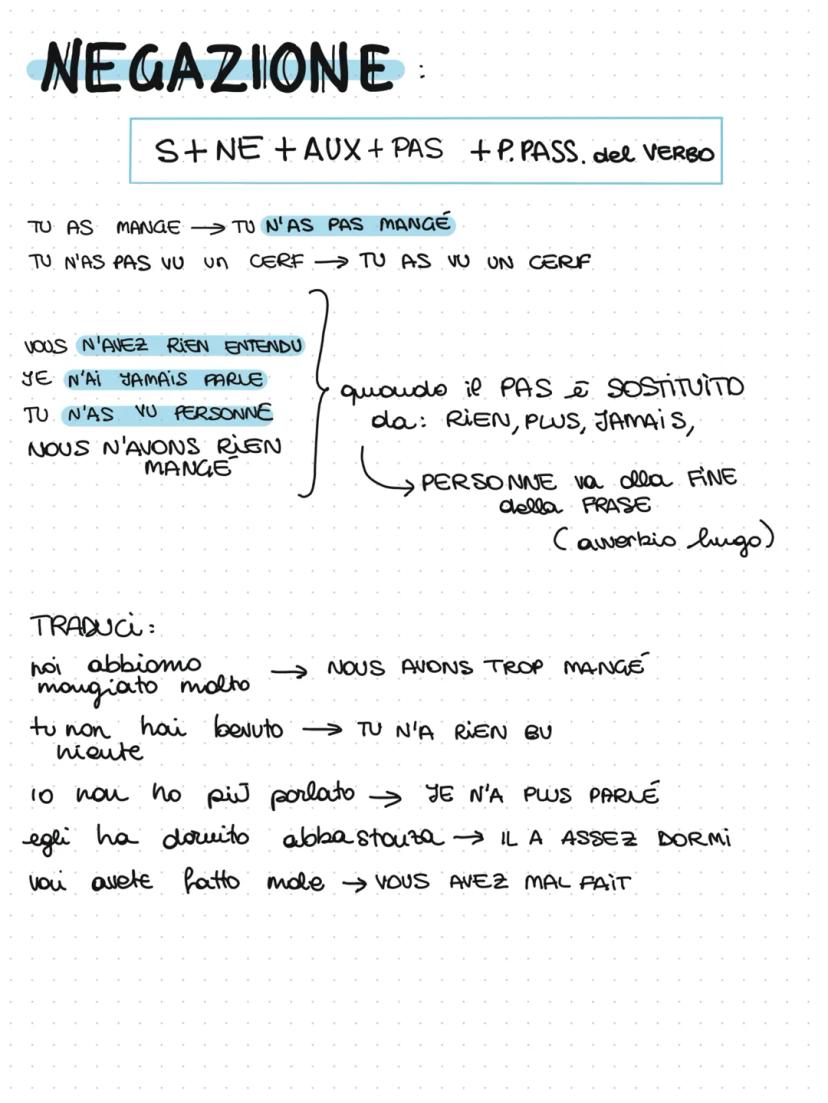 NEGAZIONE :
S + NE + AUX + PAS + P. PASS. del VERBO
TU AS MANGE → TU N'AS PAS MANGÉ
TU N'AS PAS VU un CERF → TU AS VU UN CERF
VOUS N'AVEZ RIEN ENTENDU
JE N'AI JAMAIS PARLE
TU N'AS VU PERSONNE
NOUS N'AVONS RIEN
MANGÉ
quando il PAS è SOSTITUITO
da: RIEN, PLUS, JAMAIS,
→ PERSONNE va alla FINE
della FRASE
(avverbio lungo)
TRADUCI:
noi abbiamo → NOUS AVONS TROP MANGÉ
mangiato molto
tu non hai bevuto → TU N'A RIEN BU
niente
io non ho più parlato → JE N'A PLUS PARLÉ
egli ha dormito abbastanza → IL A ASSEZ DORMI
voi avete fatto male → VOUS AVEZ MAL FAIT